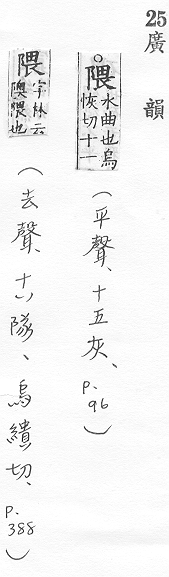 25 廣韻
○隈水曲也烏恢切十一(平聲、十五灰、p.96)
隈字林云隩隈也(去聲、十八隊、烏繢切、p.388)